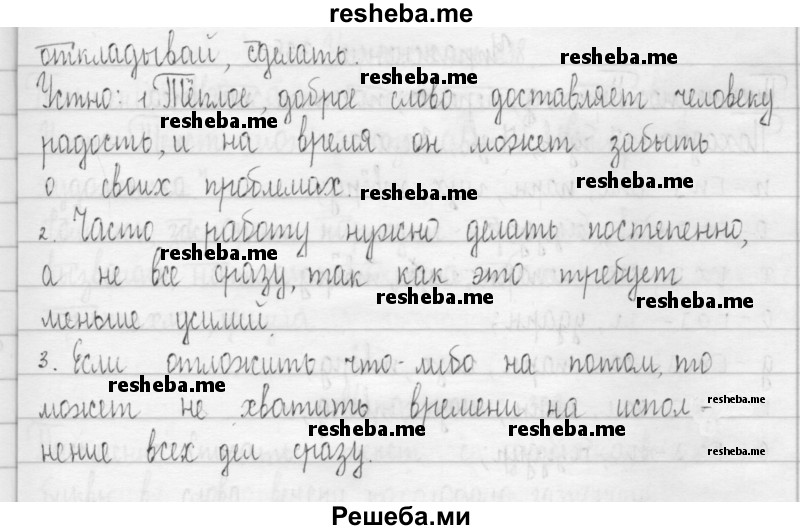 resheba.me
откладывай, сделать.
resheba.me
resheba.me
Устно: 1 Тёплое, доброе слово доставляет человеку
resheba.me
resheba.me
радость, и на время он может забыть
resheba.me
resheba.me
о своих проблемах.
2. Часто работу нужно делать постепенно,
resheba.me
а не все сразу, так как это требует
resheba.me
resheba.me
меньше усилий.
3. Если отложить что-либо на потом, то
resheba.me
может не хватить времени на испол-
resheba.me
resheba.me
resheba.me
нение всех дел сразу.
resheba.me
Решеба.ми